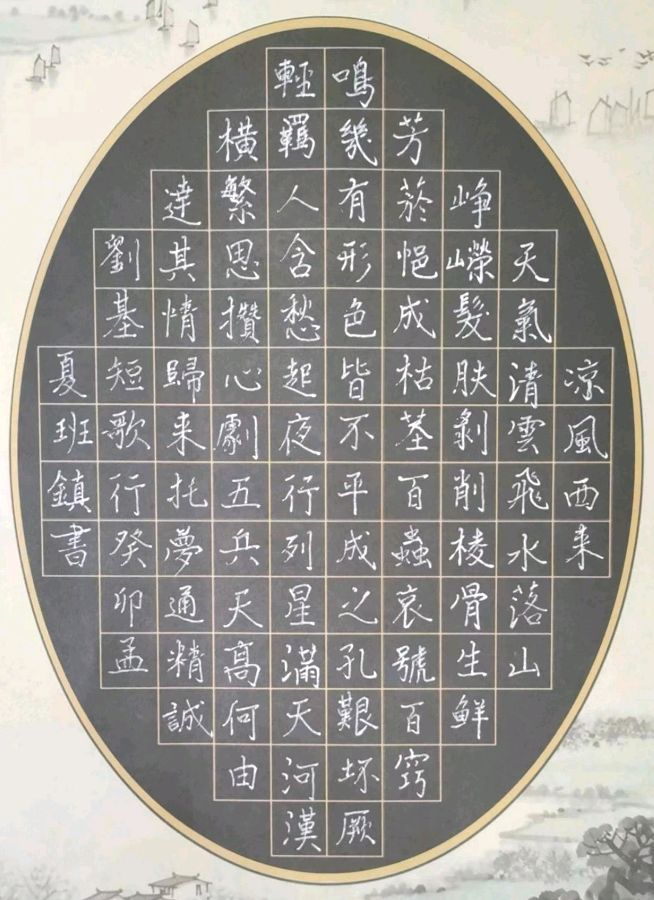 凉風西来
天氣清雲飛水落山
峥嶸髮肤剝削棱骨生鮮
芳菸悒成枯茎百蟲哀號百窍
鳴幾有形色皆不平成之孔艱坏厥
輕羈人含愁起夜行列星滿天河漢
横繁思攢心劇五兵天高何由
達其情歸来托夢通精誠
劉基短歌行癸卯孟
夏班鎮書